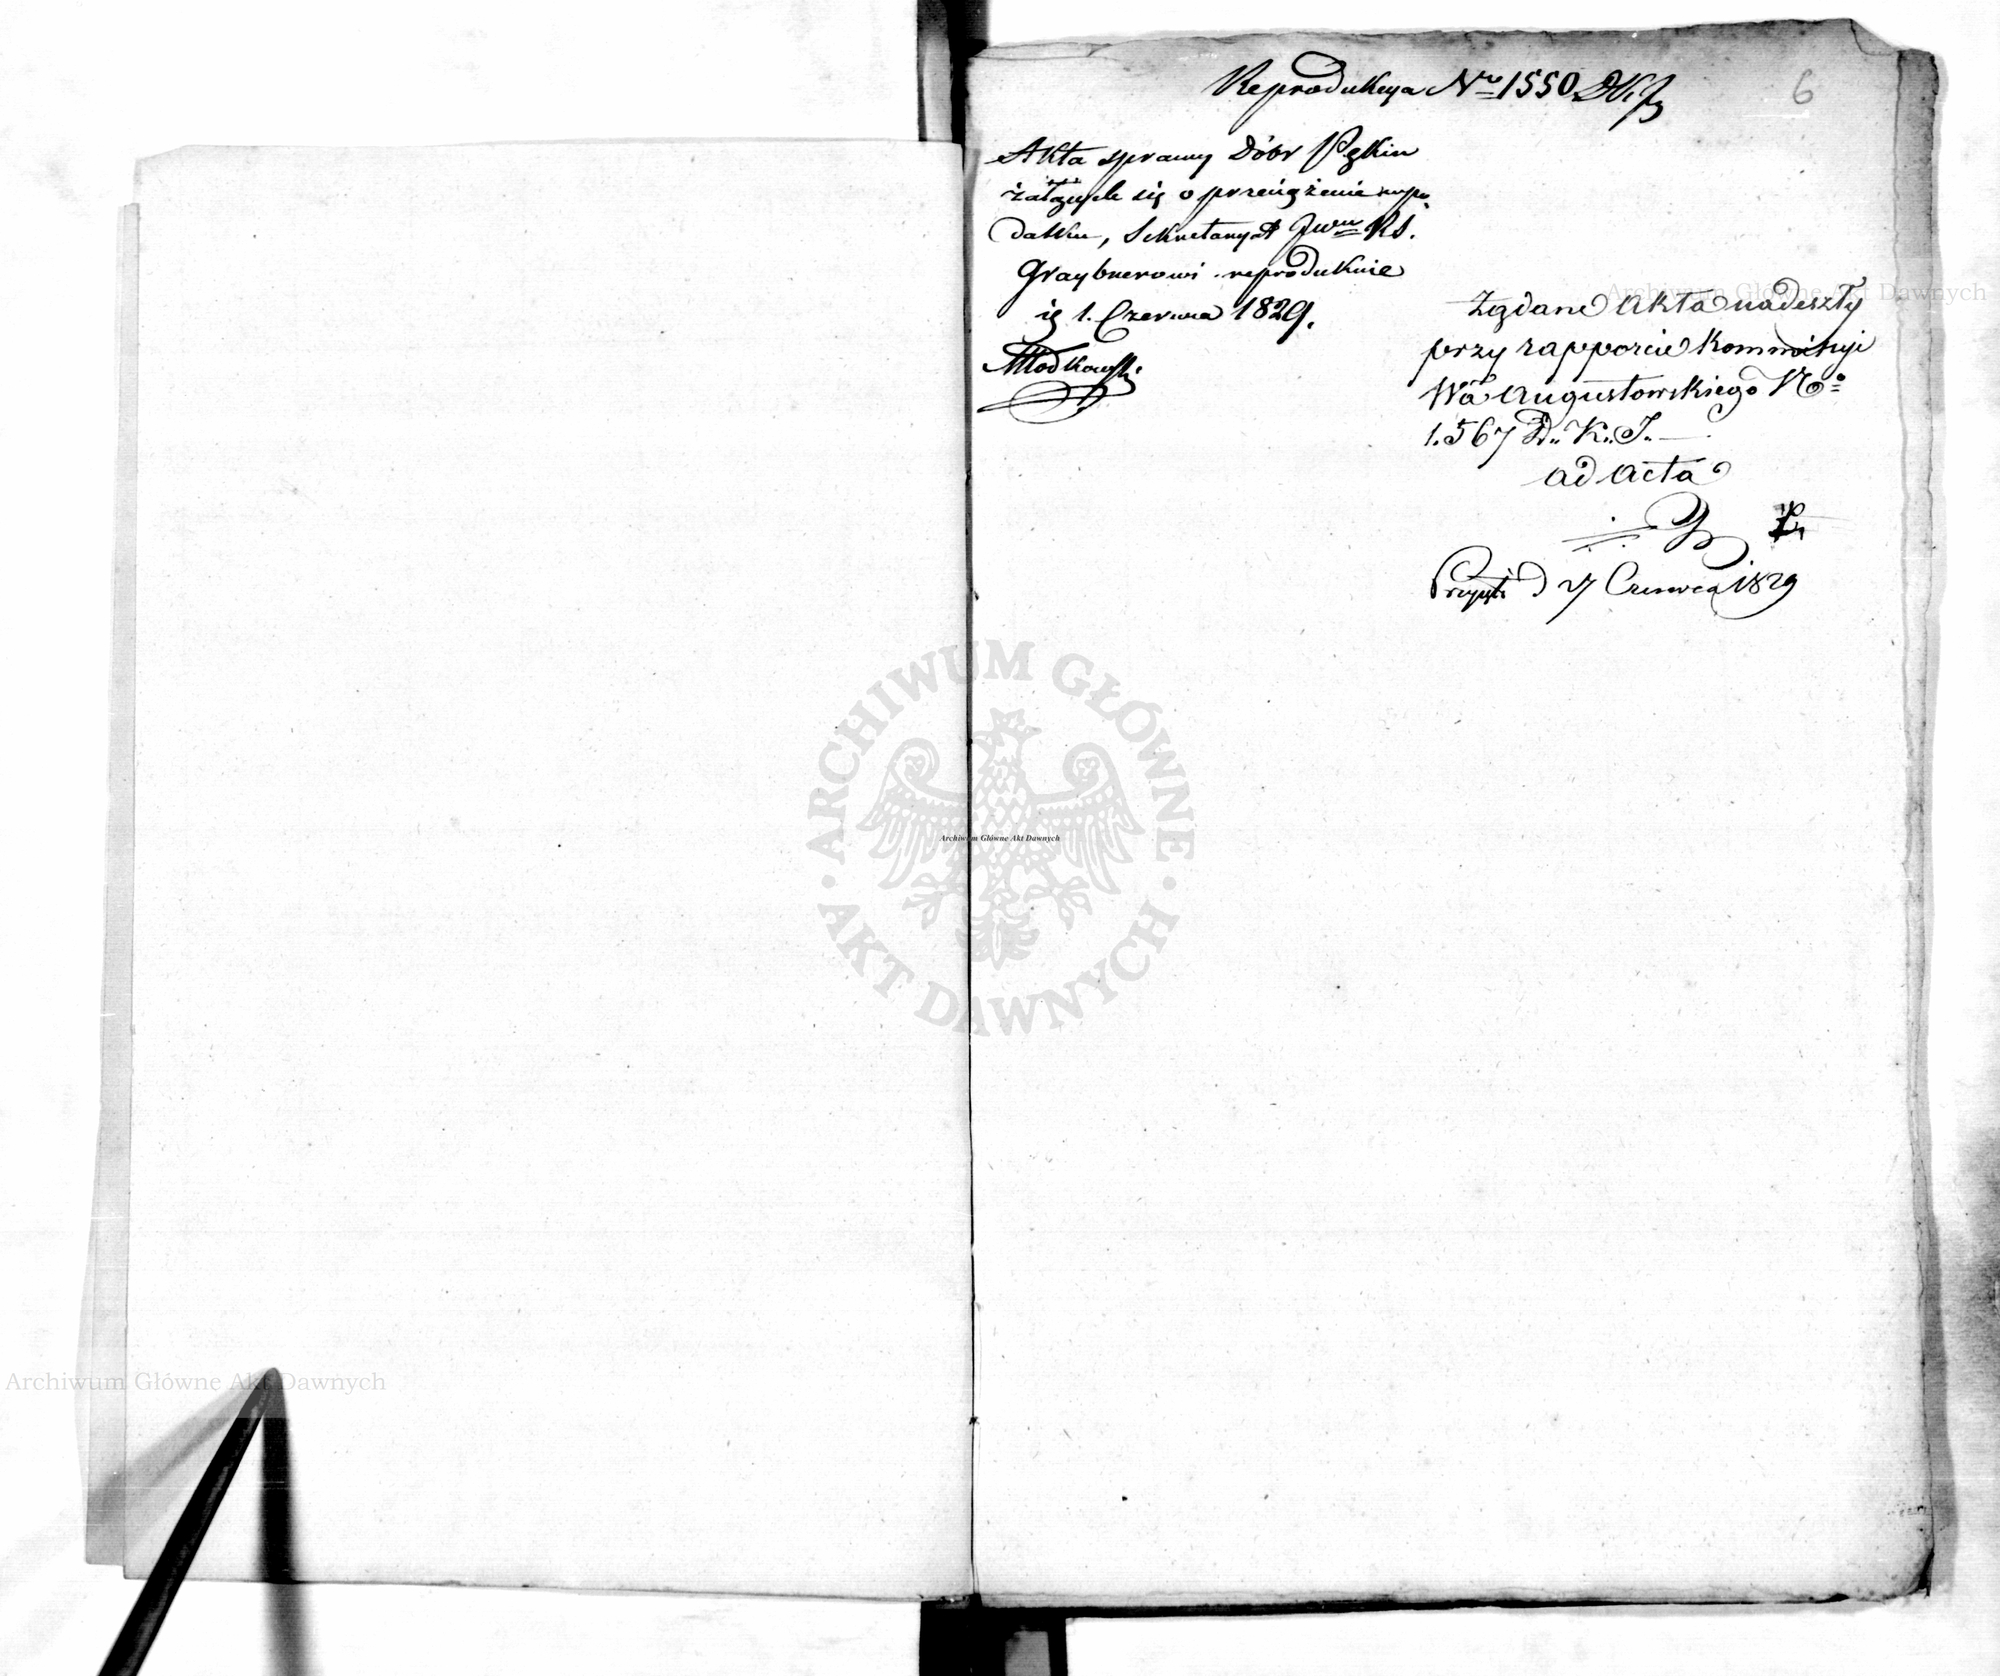 Reprodukcya Nro 1550 D.K.J.
6
Akta sprawy Dóbr
żalących się o przeciążenie w po
datku, Sekretaryat Jwu RS.
Graybnerowi reprodukuie
ię 1. Czerwca 1829.
Młodkowski
Żądane Akta nadeszły
przy rapporcie Kommissyi
Wa Augustowskiego No
1.567 D.. K.. J..
ad acta
d 27 Czerwca 1829
Archiwum Główne Akt Dawnych
ARCHIWUM GŁÓWNE
AKT DAWNYCH
Archiwum Główne Akt Dawnych
Archiwum Główne Akt Dawnych